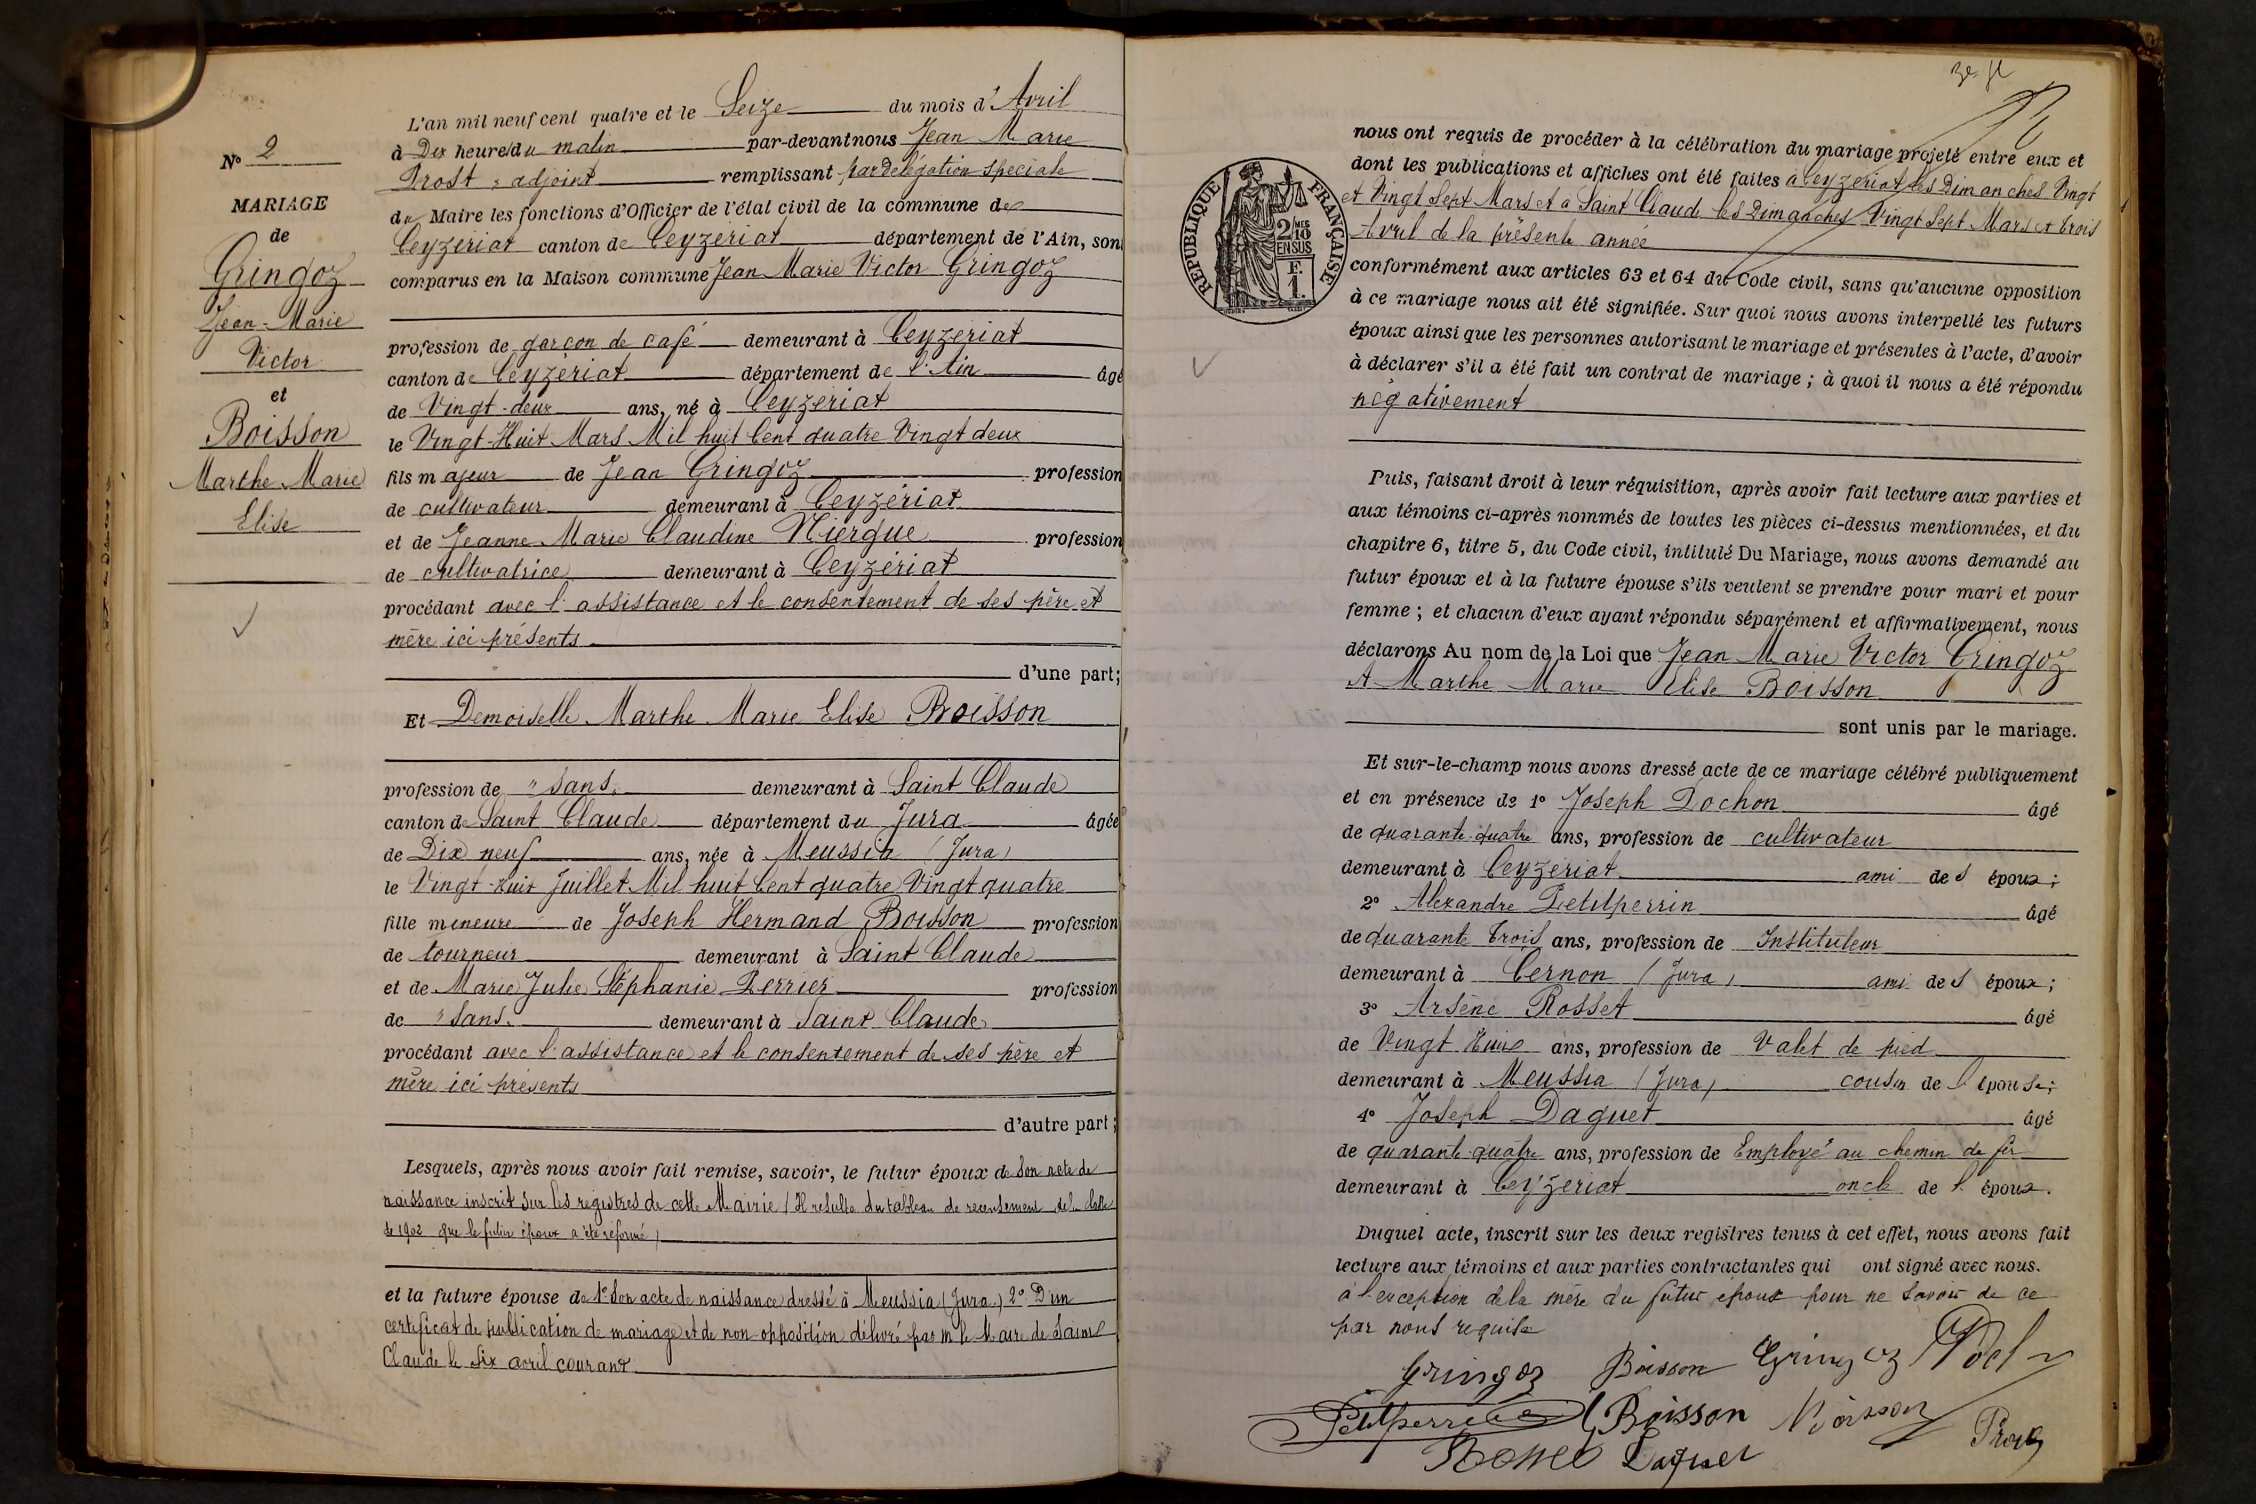 N° 2
MARIAGE
de
Gringoz
Jean-Marie
Victor
et
Boisson
Marthe Marie
Elise
L'an mil neuf cent quatre et le Seize du mois d'Avril
à Dix heures du matin par-devant nous Jean Marie
Prost, adjoint remplissant par délégation spéciale
du Maire les fonctions d'Officier de l'état civil de la commune de
Ceyzériat canton de Ceyzeriat département de l'Ain, sont
comparus en la Maison commune Jean Marie Victor Gringoz
profession de garçon de café demeurant à Ceyzeriat
canton de Ceyzériat département de l'Ain âgé
de Vingt-deux ans, né à Ceyzeriat
le Vingt-Huit Mars Mil huit Cent quatre Vingt deux
fils majeur de Jean Gringoz profession
de cultivateur demeurant à Ceyzériat
et de Jeanne Marie Claudine Niergue profession
de cultivatrice demeurant à Ceyzériat
procédant avec l'assistance et le consentement de ses père et
mère ici présents
d'une part;
Et Demoiselle Marthe Marie Elise Boisson
profession de "sans" demeurant à Saint Claude
canton de Saint Claude département du Jura âgée
de Dix neuf ans, née à Meussia (Jura)
le Vingt-Huit Juillet Mil huit Cent quatre Vingt quatre
fille mineure de Joseph Hermand Boisson profession
de tourneur demeurant à Saint Claude
et de Marie Julie Stéphanie Perrier profession
de "sans" demeurant à Saint Claude
procédant avec l'assistance et le consentement de ses père et
mère ici présents
d'autre part;
Lesquels, après nous avoir fait remise, savoir, le futur époux de Son acte de
naissance inscrit sur les registres de cette Mairie (Il résulte du tableau de recensement de la classe
de 1902 que le futur époux a été réformé)
et la future épouse de 1° Son acte de naissance dressé à Meussia (Jura) 2° D'un
certificat de publication de mariage et de non opposition délivré par Mr le Maire de Saint
Claude le six avril courant
REPUBLIQUE FRANÇAISE
2/10 MES
EN SUS
F.
1.
nous ont requis de procéder à la célébration du mariage projeté entre eux et
dont les publications et affiches ont été faites à Ceyzeriat les Dimanches Vingt
et Vingt Sept Mars et à Saint Claude les Dimanches Vingt Sept Mars et trois
Avril de la présente année
conformément aux articles 63 et 64 du Code civil, sans qu'aucune opposition
à ce mariage nous ait été signifiée. Sur quoi nous avons interpellé les futurs
époux ainsi que les personnes autorisant le mariage et présentes à l'acte, d'avoir
à déclarer s'il a été fait un contrat de mariage; à quoi il nous a été répondu
négativement
Puis, faisant droit à leur réquisition, après avoir fait lecture aux parties et
aux témoins ci-après nommés de toutes les pièces ci-dessus mentionnées, et du
chapitre 6, titre 5, du Code civil, intitulé Du Mariage, nous avons demandé au
futur époux et à la future épouse s'ils veulent se prendre pour mari et pour
femme; et chacun d'eux ayant répondu séparément et affirmativement, nous
déclarons Au nom de la Loi que Jean Marie Victor Gringoz
et Marthe Marie Elise Boisson
sont unis par le mariage.
Et sur-le-champ nous avons dressé acte de ce mariage célébré publiquement
et en présence de 1° Joseph Dochon âgé
de quarante-quatre ans, profession de cultivateur
demeurant à Ceyzeriat ami des époux;
2° Alexandre Petitperrin âgé
de quarante trois ans, profession de Instituteur
demeurant à Cernon (Jura) ami des époux;
3° Arsène Rosset âgé
de Vingt Huit ans, profession de Valet de pied
demeurant à Meussia (Jura) cousin de l'épouse;
4° Joseph Daguet âgé
de quarante-quatre ans, profession de Employé au chemin de fer
demeurant à Ceyzeriat oncle de l'époux.
Duquel acte, inscrit sur les deux registres tenus à cet effet, nous avons fait
lecture aux témoins et aux parties contractantes qui ont signé avec nous.
à l'exception de la mère du futur époux pour ne savoir de ce
par nous requise
Gringoz Boisson Gringoz
Petitperrin Boisson Boisson Prost
Rosset Daguet